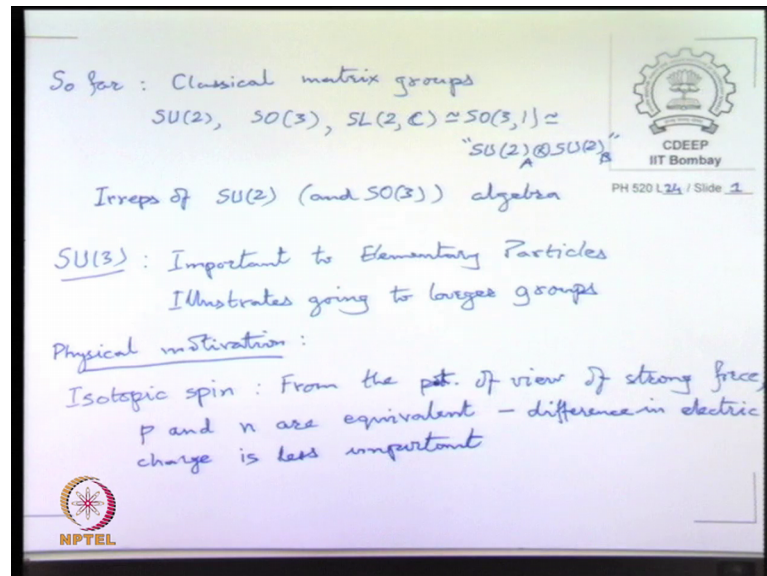 So far : Classical matrix groups
SU(2), SO(3), SL(2,C) ≃ SO(3,1) ≃
"SU(2)_A ⊗ SU(2)_B"
CDEEP
IIT Bombay
PH 520 L 24 / Slide 1
Irreps of SU(2) (and SO(3)) algebra
SU(3) : Important to Elementary Particles
Illustrates going to larger groups
Physical motivation :
Isotopic spin : From the pt. of view of strong force,
p and n are equivalent – difference in electric
charge is less important
NPTEL